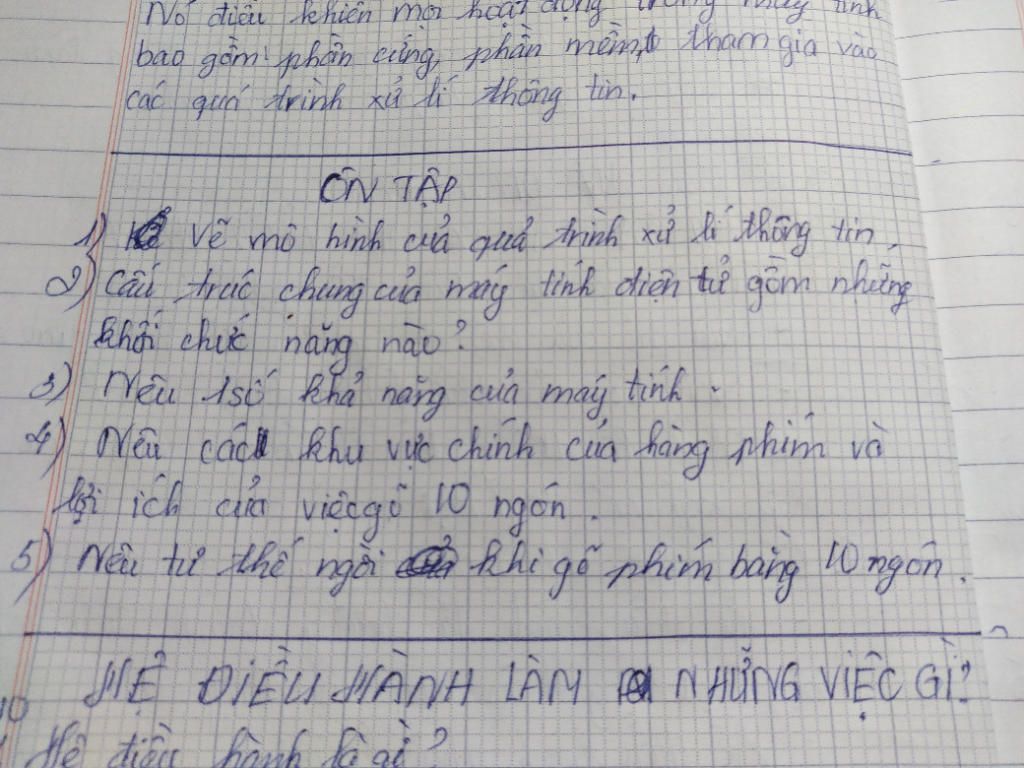 Nó điều khiển mọi hoạt động trong máy tính
bao gồm phần cứng, phần mềm, tham gia vào
các quá trình xử lí thông tin.
ÔN TẬP
1) Vẽ mô hình của quá trình xử lí thông tin.
2) Cấu trúc chung của máy tính điện tử gồm những
khối chức năng nào?
3) Nêu 1 số khả năng của máy tính.
4) Nêu các khu vực chính của hàng phím và
lợi ích của việc gõ 10 ngón.
5) Nêu tư thế ngồi khi gõ phím bằng 10 ngón.
HỆ ĐIỀU HÀNH LÀM NHỮNG VIỆC GÌ?
Hệ điều hành là gì?